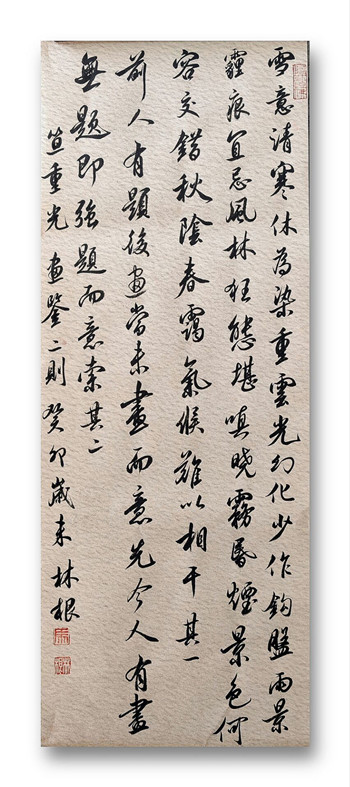 雪意清寒休為染重雲光幻化少作鈎盤雨景
霾痕宜忌風林狂態堪嗔曉霧昏煙景色何
容交錯秋陰春靄氣候難以相干其一
前人有題後畫當未畫而意先今人有畫
無題即強題而意索其二
笪重光畫鑒二則癸卯歲末林根